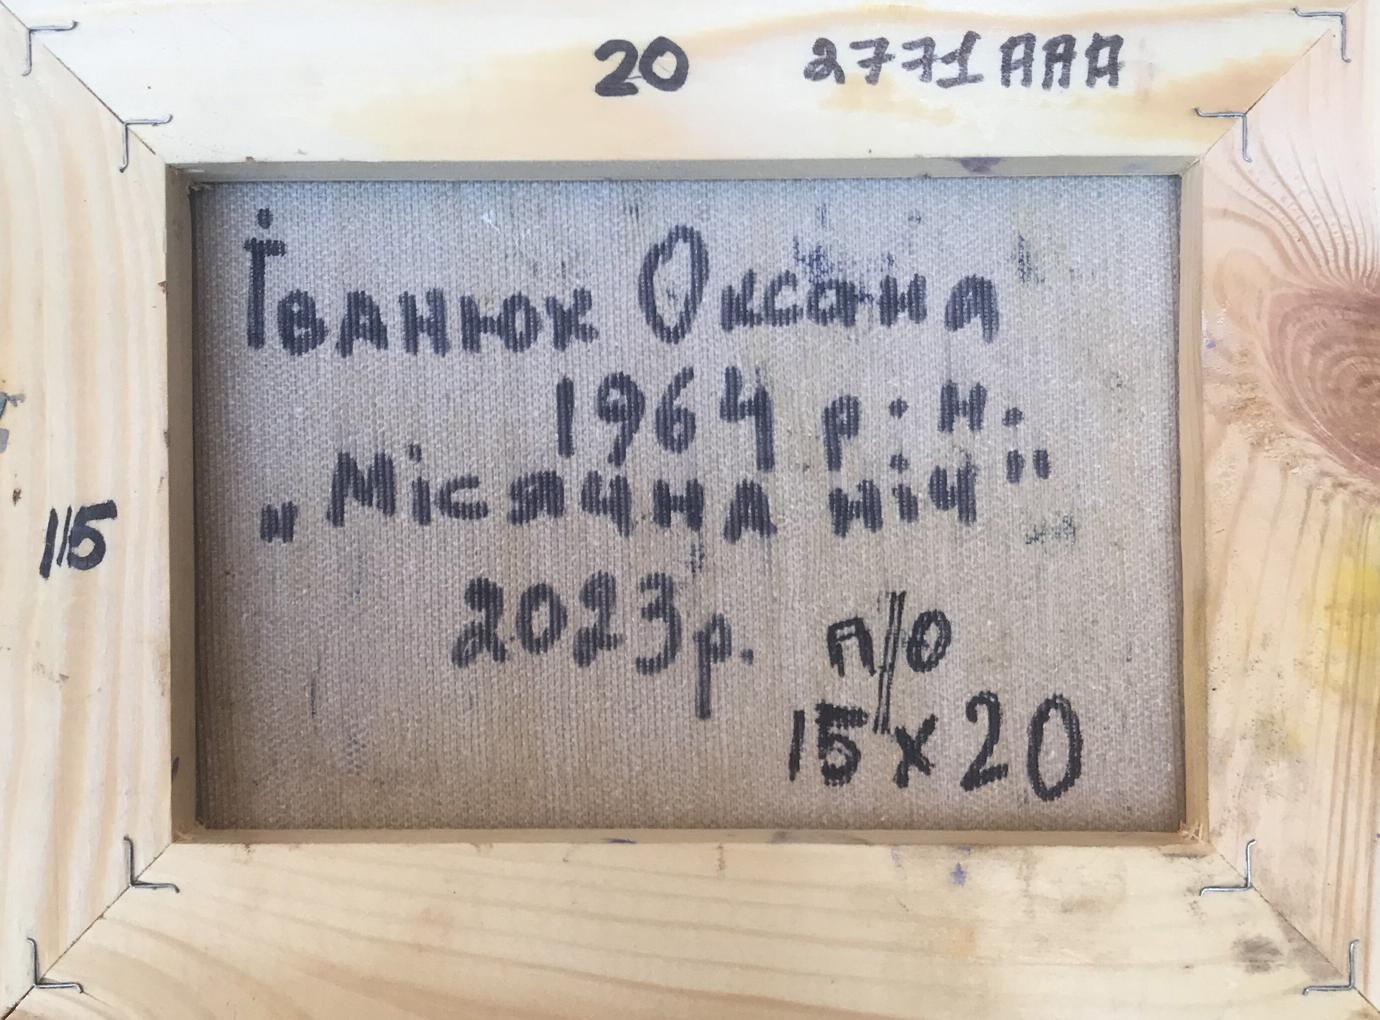 20 2771ААА
Іванюк Оксана
1964 р. н.
„Місячна ніч"
115
2023р. п//о
15х20